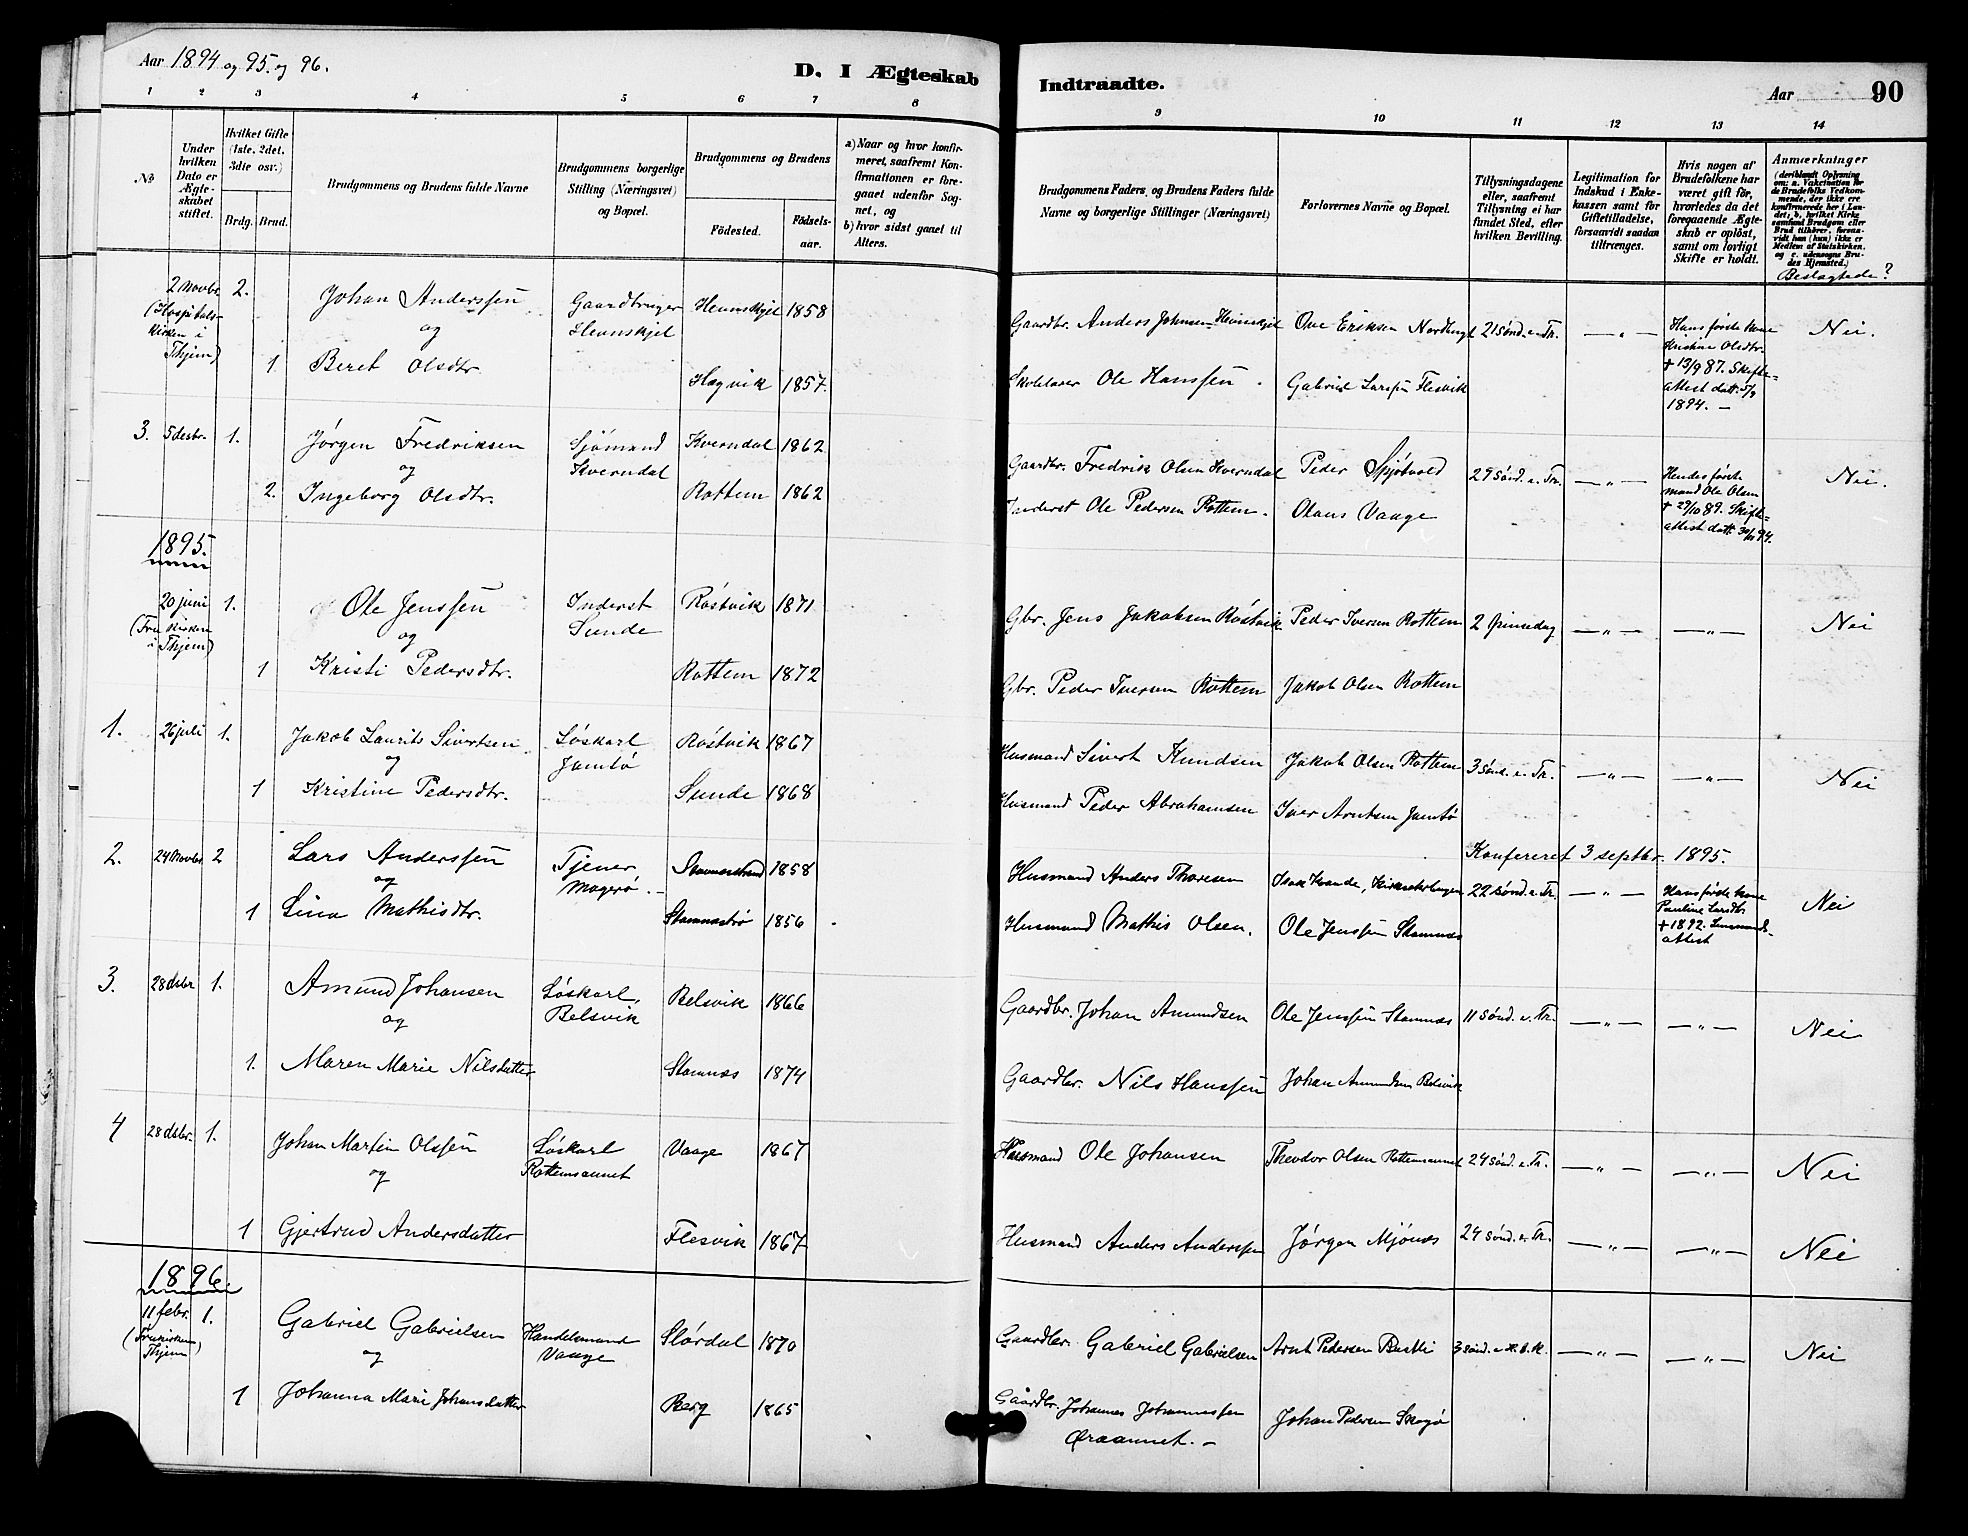 Aar 1894 og 95. og 96.
D. I Ægteskab Indtraadte.
Aar 90
1 2 3 4 5 6 7 8 9 10 11 12 13 14
No
Under hvilken Dato er Ægteskabet stiftet.
Hvilket Gifte (1ste, 2det, 3die osv.)
Brdg. Brud.
Brudgommens og Brudens fulde Navne
Brudgommens borgerlige Stilling (Næringsvei) og Bopæl.
Brudgommens og Brudens
Fødested. Fødselsaar.
a) Naar og hvor konfirmeret, saafremt Konfirmationen er foregaaet udenfor Sognet, og
b) hvor sidst gaaet til Alters.
Brudgommens Faders, og Brudens Faders fulde Navne og borgerlige Stillinger (Næringsvei)
Forlovernes Navne og Bopæl.
Tillysningsdagene eller, saafremt Tillysning ei har fundet Sted, efter hvilken Bevilling.
Legitimation for Indskud i Enkekassen samt for Giftetilladelse, forsaavidt saadan tiltrænges.
Hvis nogen af Brudefolkene har været gift før, hvorledes da det foregaaende Ægteskab er opløst, samt om lovligt Skifte er holdt.
Anmærkninger (deriblandt Oplysning om: a. Vaccination for de Brudefolks Vedkommende, der ikke ere konfirmerede her i Landet; b. hvilket Kirkesamfund Brudgom eller Brud tilhører, forsaavidt han (hun) ikke er Medlem af Statskirken, og c. udensogns Brudes Hjemsted.)
Beslægtede?
2 Novbr. 2. Johan Anderssen Gaardbruger Hemnskjel 1858 Gaardbr. Anders Johnsen Hemnskjel Ove Eriksen Nordbugt 21 Sønd. e. Tr. — „ — Hans første kone Nei.
(Hospitalskirken i Thjem) og Hemnskjel Kristine Olsdtr.
1 Beret Olsdtr. Hagvik 1857. Skolelærer Ole Hanssen. Gabriel Larssen Flesvik † 13/9 87. Skifteattest dat. 5/9 1894. —
3. 5 desbr. 1. Jørgen Fredriksen Sjømand Kverndal 1862 Gaardbr. Fredrik Olsen Kverndal Peder Spjøtvold 29 Sønd. e. Tr. — „ — Hendes første Nei.
og Kverndal mand Ole Olsen
2. Ingeborg Olsdtr. Rottem 1862 Inderst Ole Pedersen Rottem. Olaus Vaage † 29/10 89. Skifteattest dat. 30/11 94.
1895.
20 juni 1. Ole Jenssen Inderst Røstvik 1871 Gbr. Jens Jakobsen Røstvik Peder Iversen Rottem 2 Pinsedag — „ — — „ — Nei
(Fruekirken i Thjem) og Sunde
1 Kristi Pedersdtr. Rottem 1872 Gbr. Peder Iversen Rottem Jakob Olsen Rottem
1. 26 juli 1. Jakob Laurits Sivertsen Løskarl Røstvik 1867 Husmand Sivert Knudsen Jakob Olsen Rottem 3 Sønd. e. Tr. — „ — — „ — Nei
og Jamtø
1 Kristine Pedersdtr. Sunde 1868 Husmand Peder Abrahamsen Iver Arntsen Jamtø
Konfereret 3 septbr. 1895.
2. 24 Novbr. 2 Lars Anderssen Tjener 1858 Husmand Anders Thoresen Isak Krande, 22 Sønd. e. Tr. — „ — Hans første kone Nei
og Magerø. — Pauline Larsdtr.
1 Lina Mathisdtr. 1856 Husmand Mathis Olsen. Ole Jenssen Stamnæs † 1892. attest
3. 28 dsbr 1. Amund Johansen Løskarl, Belsvik 1866 Gaardbr. Johan Amundsen Ole Jenssen Stamnæs 11 Sønd. e. Tr. — „ — — „ — Nei
og Belsvik
1. Maren Marie Nilsdatter Stamnæs 1874 Gaardbr. Nils Hanssen Johan Amundsen Belsvik
4 28 dsbr. 1. Johan Martin Olssen Løskarl Vaage 1867 Husmand Ole Johansen Theodor Olsen Rottemsannet 24 Sønd. e. Tr. — „ — — „ — Nei
og Rottemsannet
1 Gjertrud Andersdatter Flesvik 1867 Husmand Anders Anderssen Jørgen Mjønæs 24 Sønd. e. Tr. — „ — — „ — Nei
1896.
11 febr. 1. Gabriel Gabrielsen Handelsmand Slørdal 1870 Gaardbr. Gabriel Gabrielsen Arnt Pedersen Bustli 3 Sønd. e. H. 3. K. — „ — — „ — Nei
(Fruekirken Thjem) og Vaage
1 Johanna Marie Johansdatter Berg 1865 Gaardbr. Johannes Johannessen Johan Pedersen Skogø
Øraannet. —